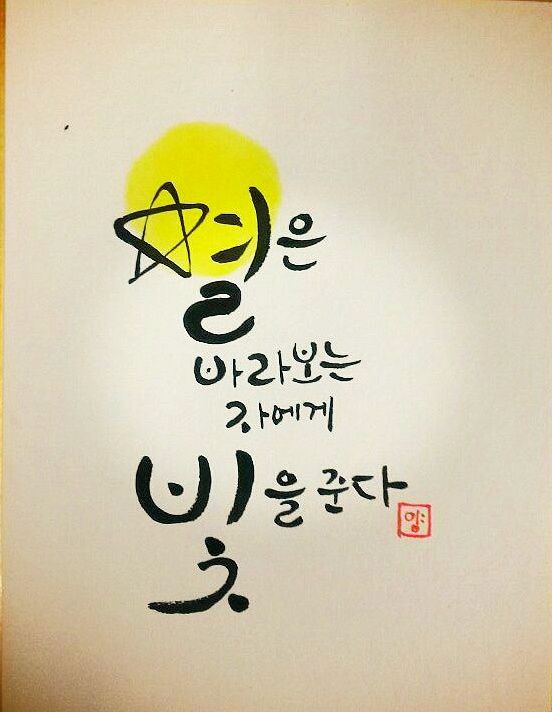 별은
바라보는
자에게
빛을 준다
양